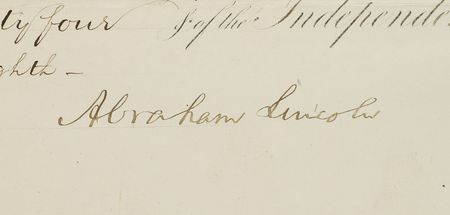 ty four & of the Independe
ghth —
Abraham Lincoln